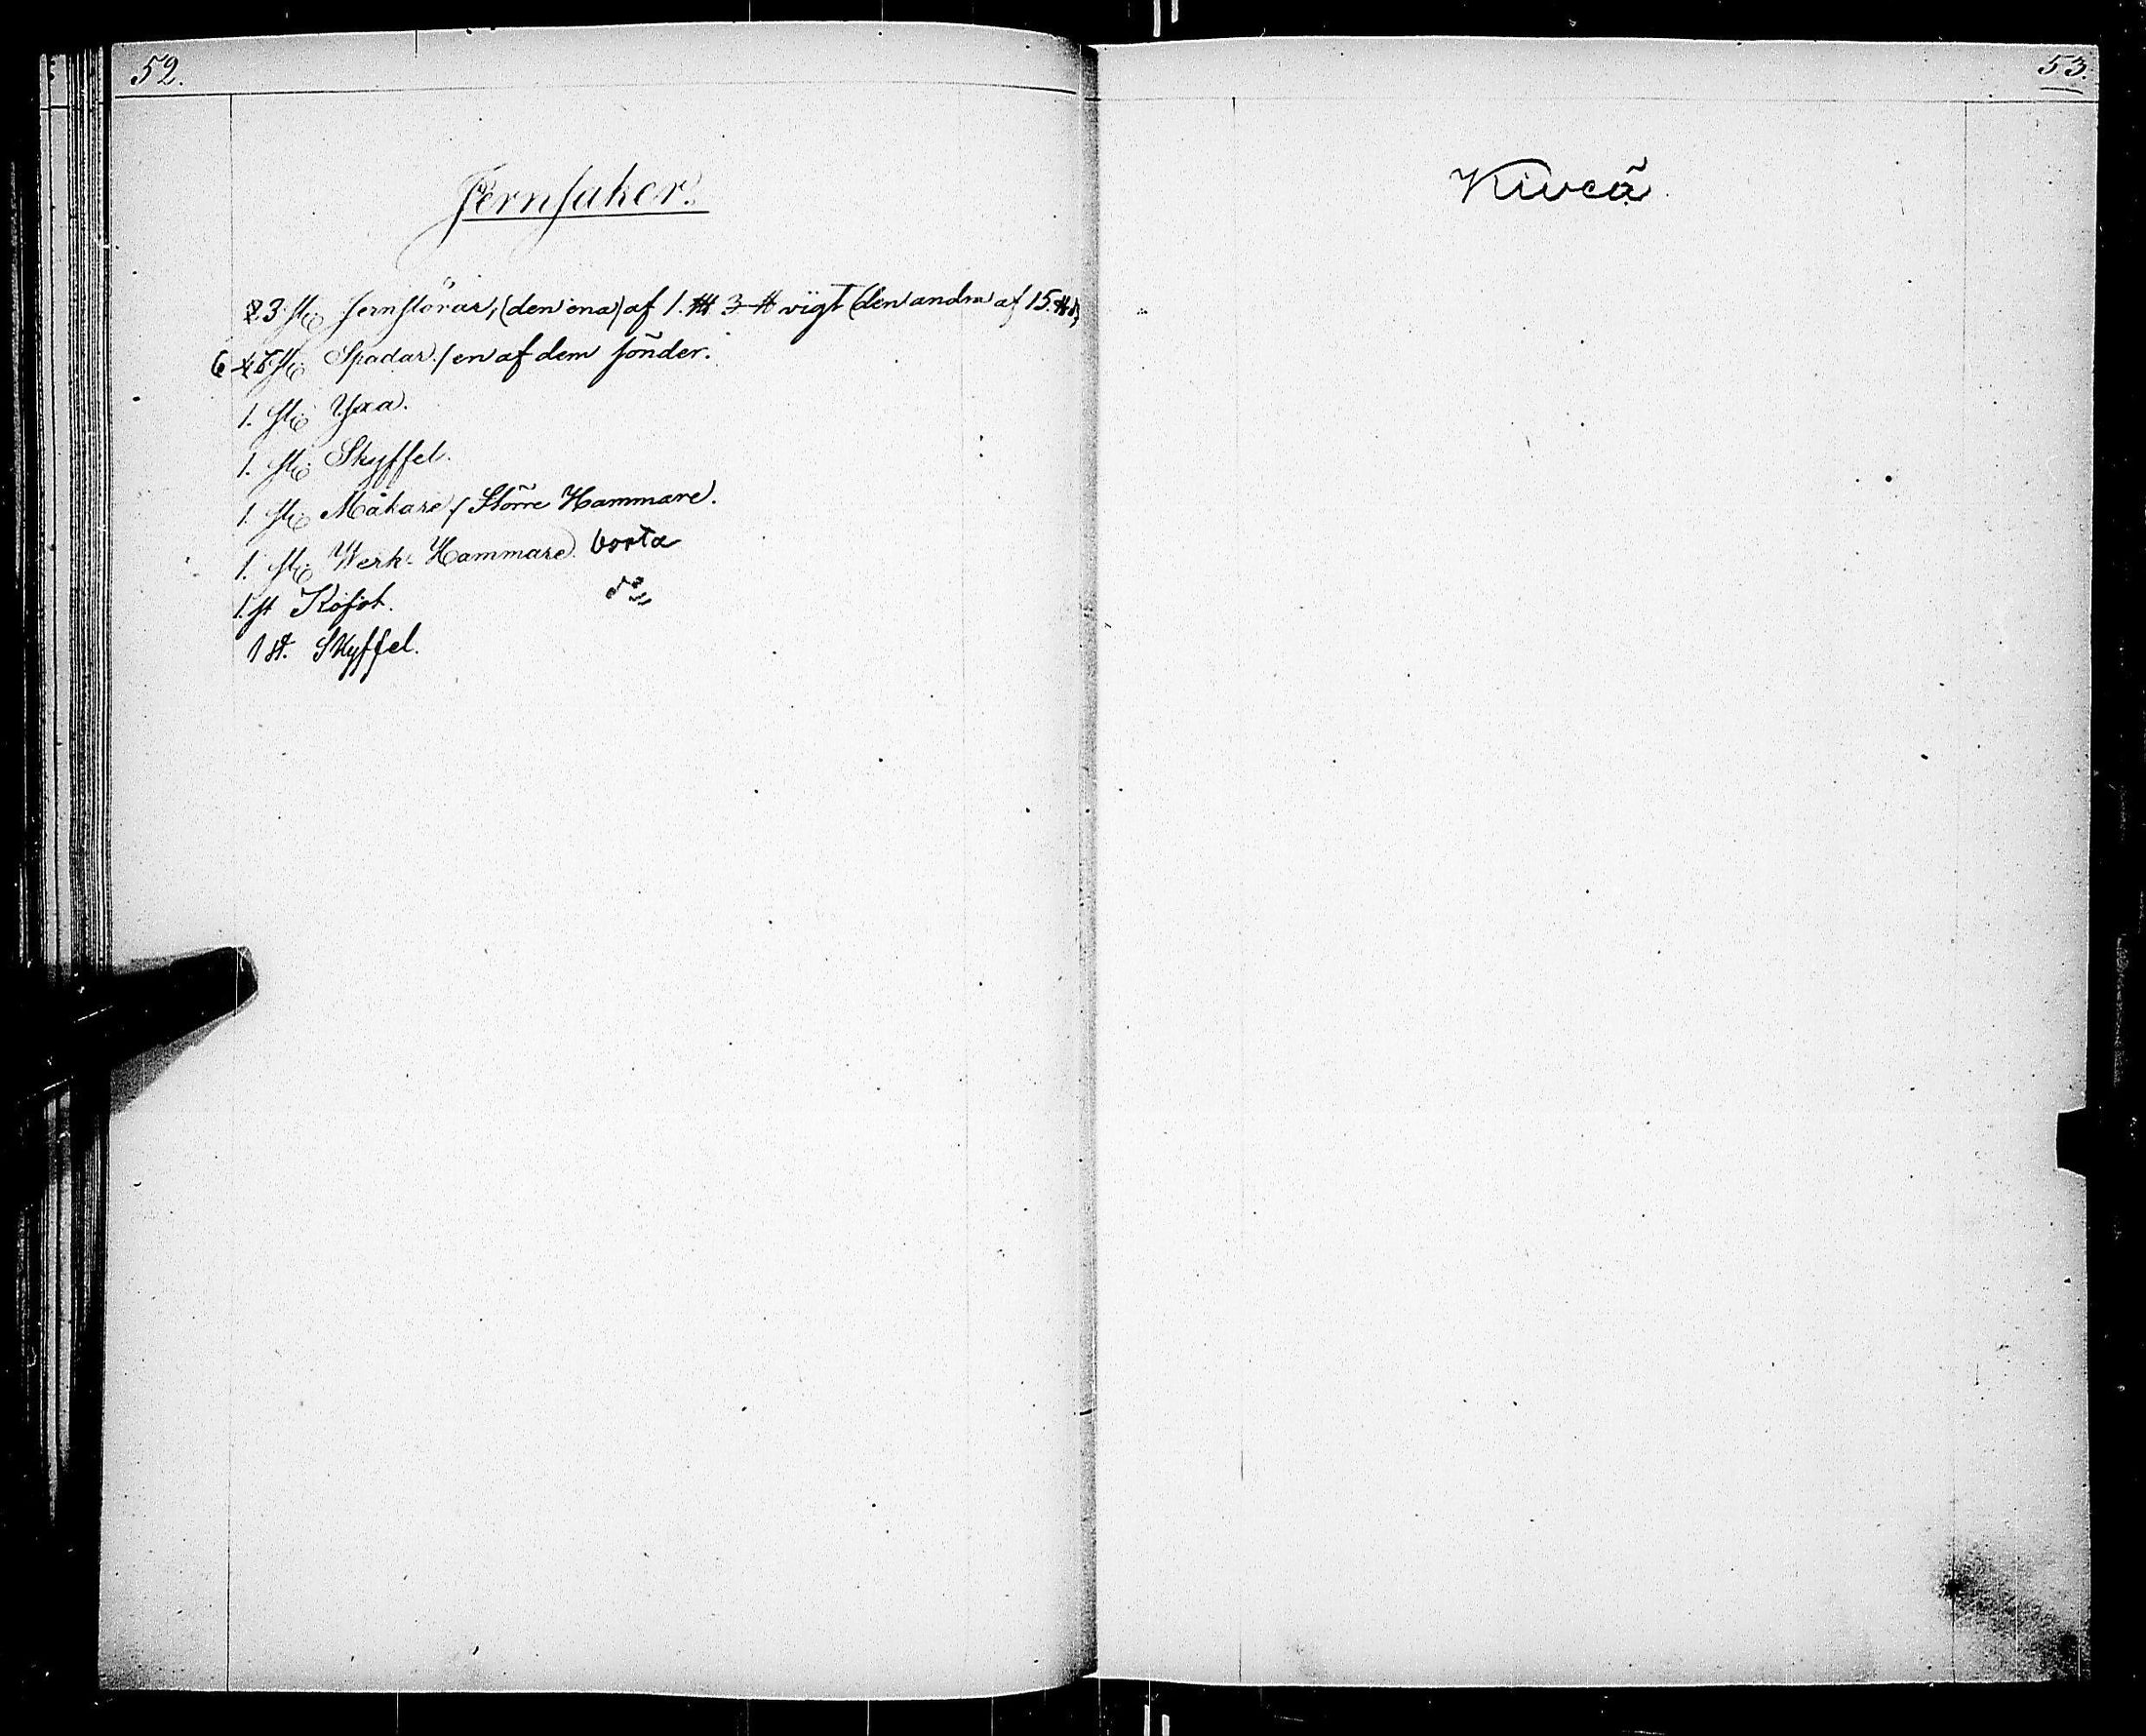 52.
Jernsaker.
3 st. Jernstörar, (den ena) af 1. 3 vigt (den andra af 15.
6 st. Spadar / en af dem sönder.
1. st. Yxa.
1. st. Skyffel.
1. st. Måkare / Större Hammare.
1. st. Werk-Hammare borta
1. st Kofot. do
1 st. Skyffel.
53.
Kiveä